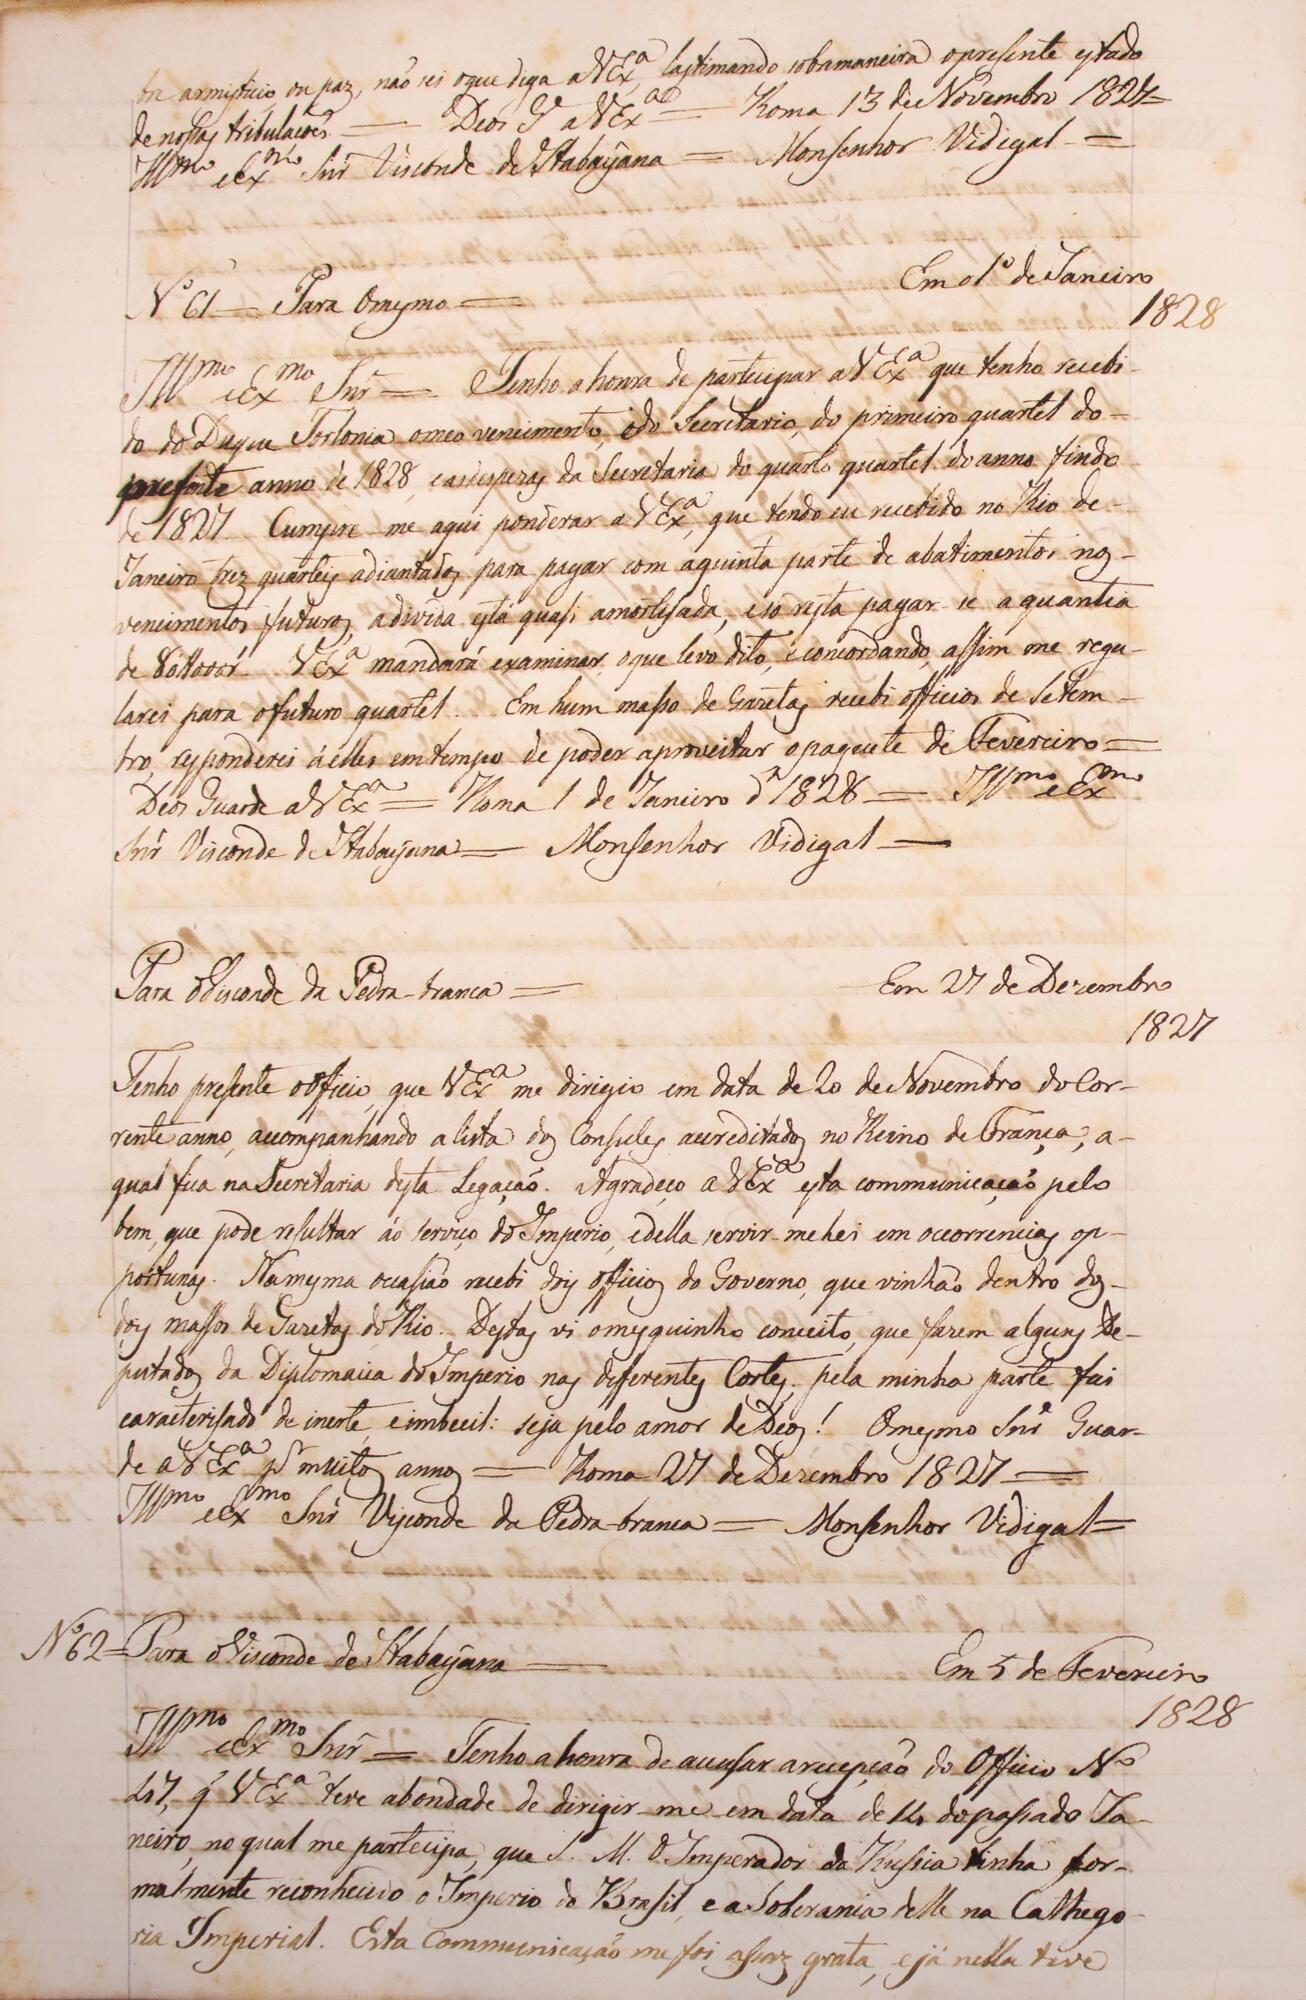 bre armisticio, ou paz, não sei oque diga a V Ex.ª, lastimando sobamaneira opresente estado
de nossas tribulações — Deos G.e a V Ex.ª = Roma 13 de Novembro 1827 =
Ill.mo e Ex.mo Snr Visconde de Itabayana = Monsenhor Vidigal =
N.º 61 — Para Omesmo — Em o 1.º de Janeiro
1828
Ill.mo e Ex.mo Snr — Tenho ahonra de partecipar a V Ex.ª que tenho recebi-
do do Duque Torlonia omeo vencimento, edo Secretario, do primeiro quartel do-
presente anno de 1828, easdespezas da Secretaria do quarto quartel do anno findo
de 1827. Cumpre-me aqui ponderar a V Ex.ª, que tendo eu recebido no Rio de-
Janeiro trez quarteis adiantados para pagar com aquinta parte de abatimentos nos-
vencimentos futuros, adivida está quasi amortisada, esó resta pagar-se aquantia
de V Ex.ª mandará examinar oque levo dito, e concordando, assim me regu-
larei para ofuturo quartel. Em hum masso de Gazetas recebi officios de Setem-
bro, responderei áelles emtempo de poder aproveitar opaquete de Fevereiro =
Deos Guarde a V Ex.ª = Roma 1 de Janeiro d' 1828 = Ill.mo e Ex.mo
Snr Visconde de Itabayana — Monsenhor Vidigal —
Para oVisconde da Pedra-branca = Em 27 de Dezembro
1827
Tenho presente oofficio, que V Ex.ª me dirigio em data de 20 de Novembro do Cor-
rente anno, acompanhando alista dos Consules acreditados no Reino de França, a-
qual fica na Secretaria desta Legação. Agradeço a V Ex.ª esta communicação pelo
bem, que pode resultar áo serviço do Imperio, edella servir-mehei em occorrencias op-
portunas. Namesma occasião recebi dois officios do Governo, que vinhão dentro dos-
dois massos de Gazetas do Rio. Destas vi omesquinho conceito, que fazem alguns De-
putados da Diplomacia do Imperio nas differentes Cortes: pela minha parte fui
caracterisado de inerte, eimbecil: seja pelo amor de Deos! Omesmo Snr Guar-
de a V Ex.ª p.r muitos annos = Roma 27 de Dezembro 1827 =
Ill.mo e Ex.mo Snr Visconde da Pedra-branca = Monsenhor Vidigal =
N.º 62 = Para oVisconde de Itabayana — Em 5 de Fevereiro
1828
Ill.mo e Ex.mo Snr = Tenho ahonra de accusar arecepção do Officio N.º
47, q̃ V Ex.ª teve abondade de dirigir-me em data de 14 dopassado Ja-
neiro, no qual me partecipa, que S. M. O Imperador da Russia tinha for-
malmente reconhecido o Imperio do Brasil, e a Soberania delle na Cathego-
ria Imperial. Esta communicação me foi assaz grata, ejá nella tive